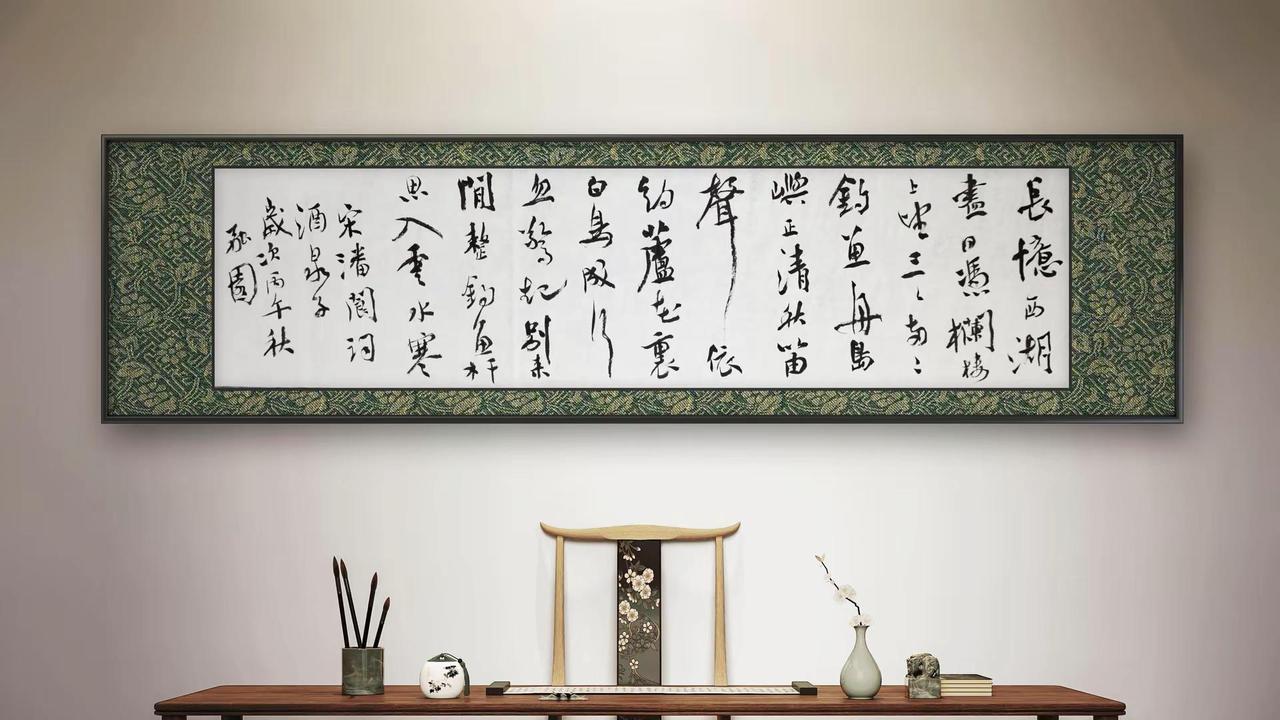 長憶西湖
盡日憑欄樓
上望三〻两〻
釣魚舟島
嶼正清秋笛
聲依
約蘆花裏
白鳥成行
忽驚起別来
閒整釣魚竿
思入雲水寒
宋潘閬詞
酒泉子
歲次丙午秋
園